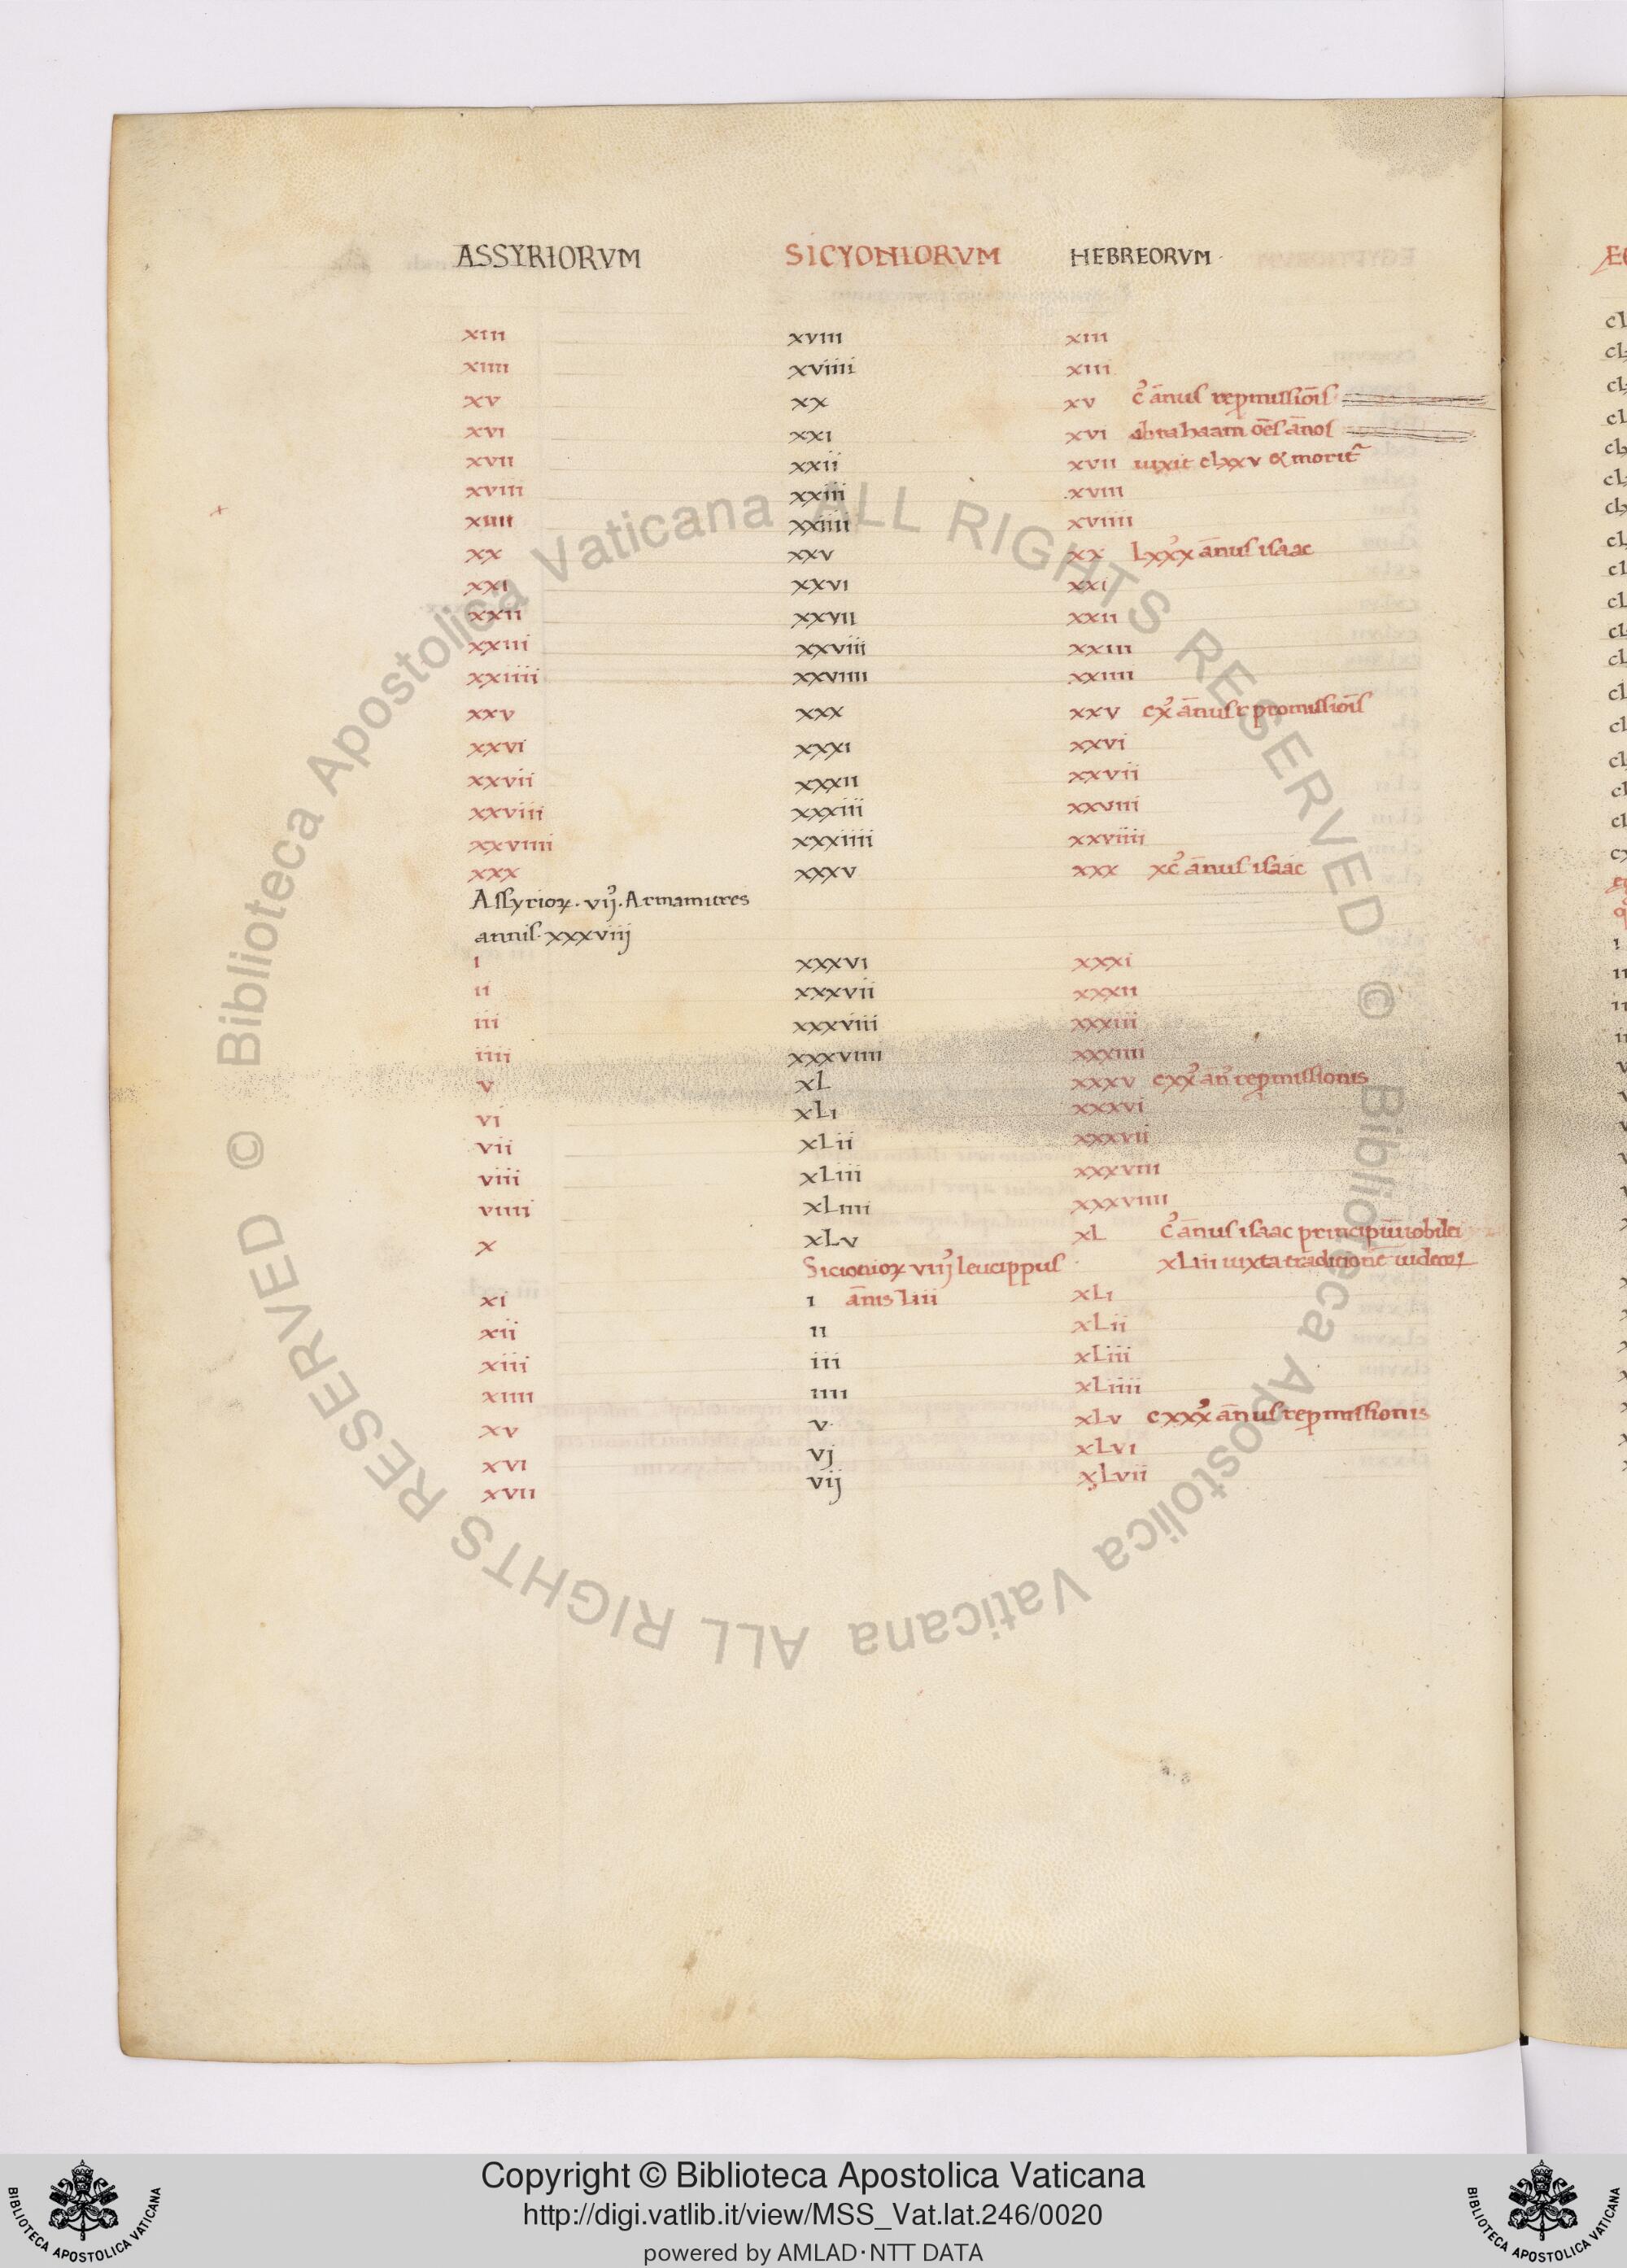 ASSYRIORVM SICYONIORVM HEBREORVM
xiii xviii xiii
xiiii xviiii xiii
xv xx xv c᷒ ān̄us rep̲missiōis
xvi xxi xvi abrahaam ōēs ānos
xvii xxii xvii uixit clxxv & morit᷑
xviii xxiii xviii
xiiii xxiiii xviiii
xx xxv xx lxxx ānus isaac
xxi xxvi xxi
xxii xxvii xxii
xxiii xxviii xxiii
xxiiii xxviiii xxiiii
xxv xxx xxv cx ānus r promissiōis
xxvi xxxi xxvi
xxvii xxxii xxvii
xxviii xxxiii xxviii
xxviiii xxxiiii xxviiii
xxx xxxv xxx xc ānus isaac
Assyrioꝝ · vij · Armamitres
annis · xxxviij
i xxxvi xxxi
ii xxxvii xxxii
iii xxxviii xxxiii
iiii xxxviiii xxxiiii
v xL xxxv cxx an᷒ rep̲missionis
vi xLi xxxvi
vii xLii xxxvii
viii xLiii xxxviii
viiii xLiiii xxxviiii
x xLv xL c ānus isaac principiū iobilei
Sicionioꝝ viij leucippus xLiii iuxta traditionē iudeoꝝ
xi i ānis liii xLi
xii ii xLii
xiii iii xLiii
xiiii iiii xLiiii
xv v xLv cxxx ānus rep̲missionis
xvi vj xLvi
xvii vij xLvii
© Biblioteca Apostolica Vaticana ALL RIGHTS RESERVED © Biblioteca Apostolica Vaticana ALL RIGHTS RESERVED
Copyright © Biblioteca Apostolica Vaticana
http://digi.vatlib.it/view/MSS_Vat.lat.246/0020
powered by AMLAD·NTT DATA
BIBLIOTECA APOSTOLICA VATICANA
BIBLIOTECA APOSTOLICA VATICANA